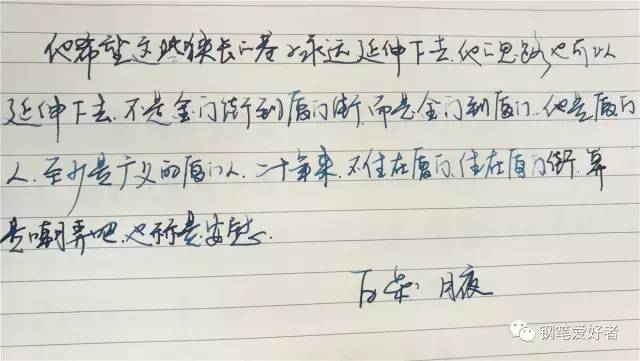 他希望这些狭长的巷子永远延伸下去,他的思路也可以
延伸下去.不是金门街到厦门街,而是金门到厦门.他是厦门
人.至少是广义的厦门人.二十年来.不住在厦门,住在厦门街.算
是嘲弄吧,也算是安慰.
月夜
钢笔爱好者